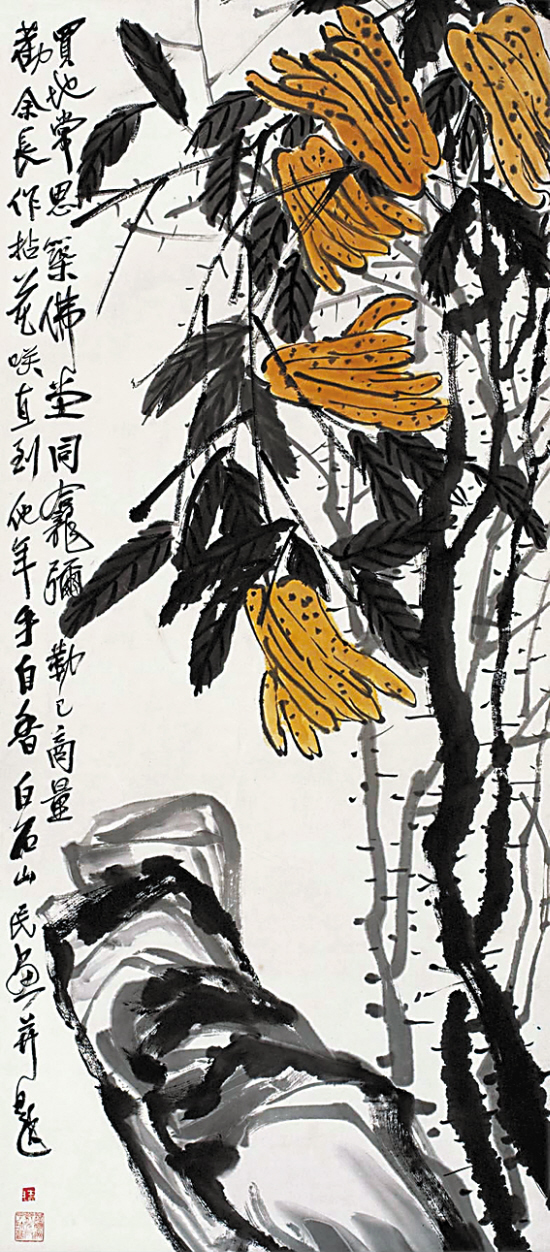 買地常思築佛堂同龕彌勒已商量
勸余長作拈花咲直到他年手自香白石山民畫并題